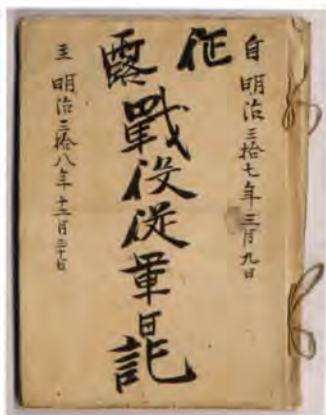 自 明治三拾七年三月九日
征
露戰役従軍日記
至 明治三拾八年十二月三十日